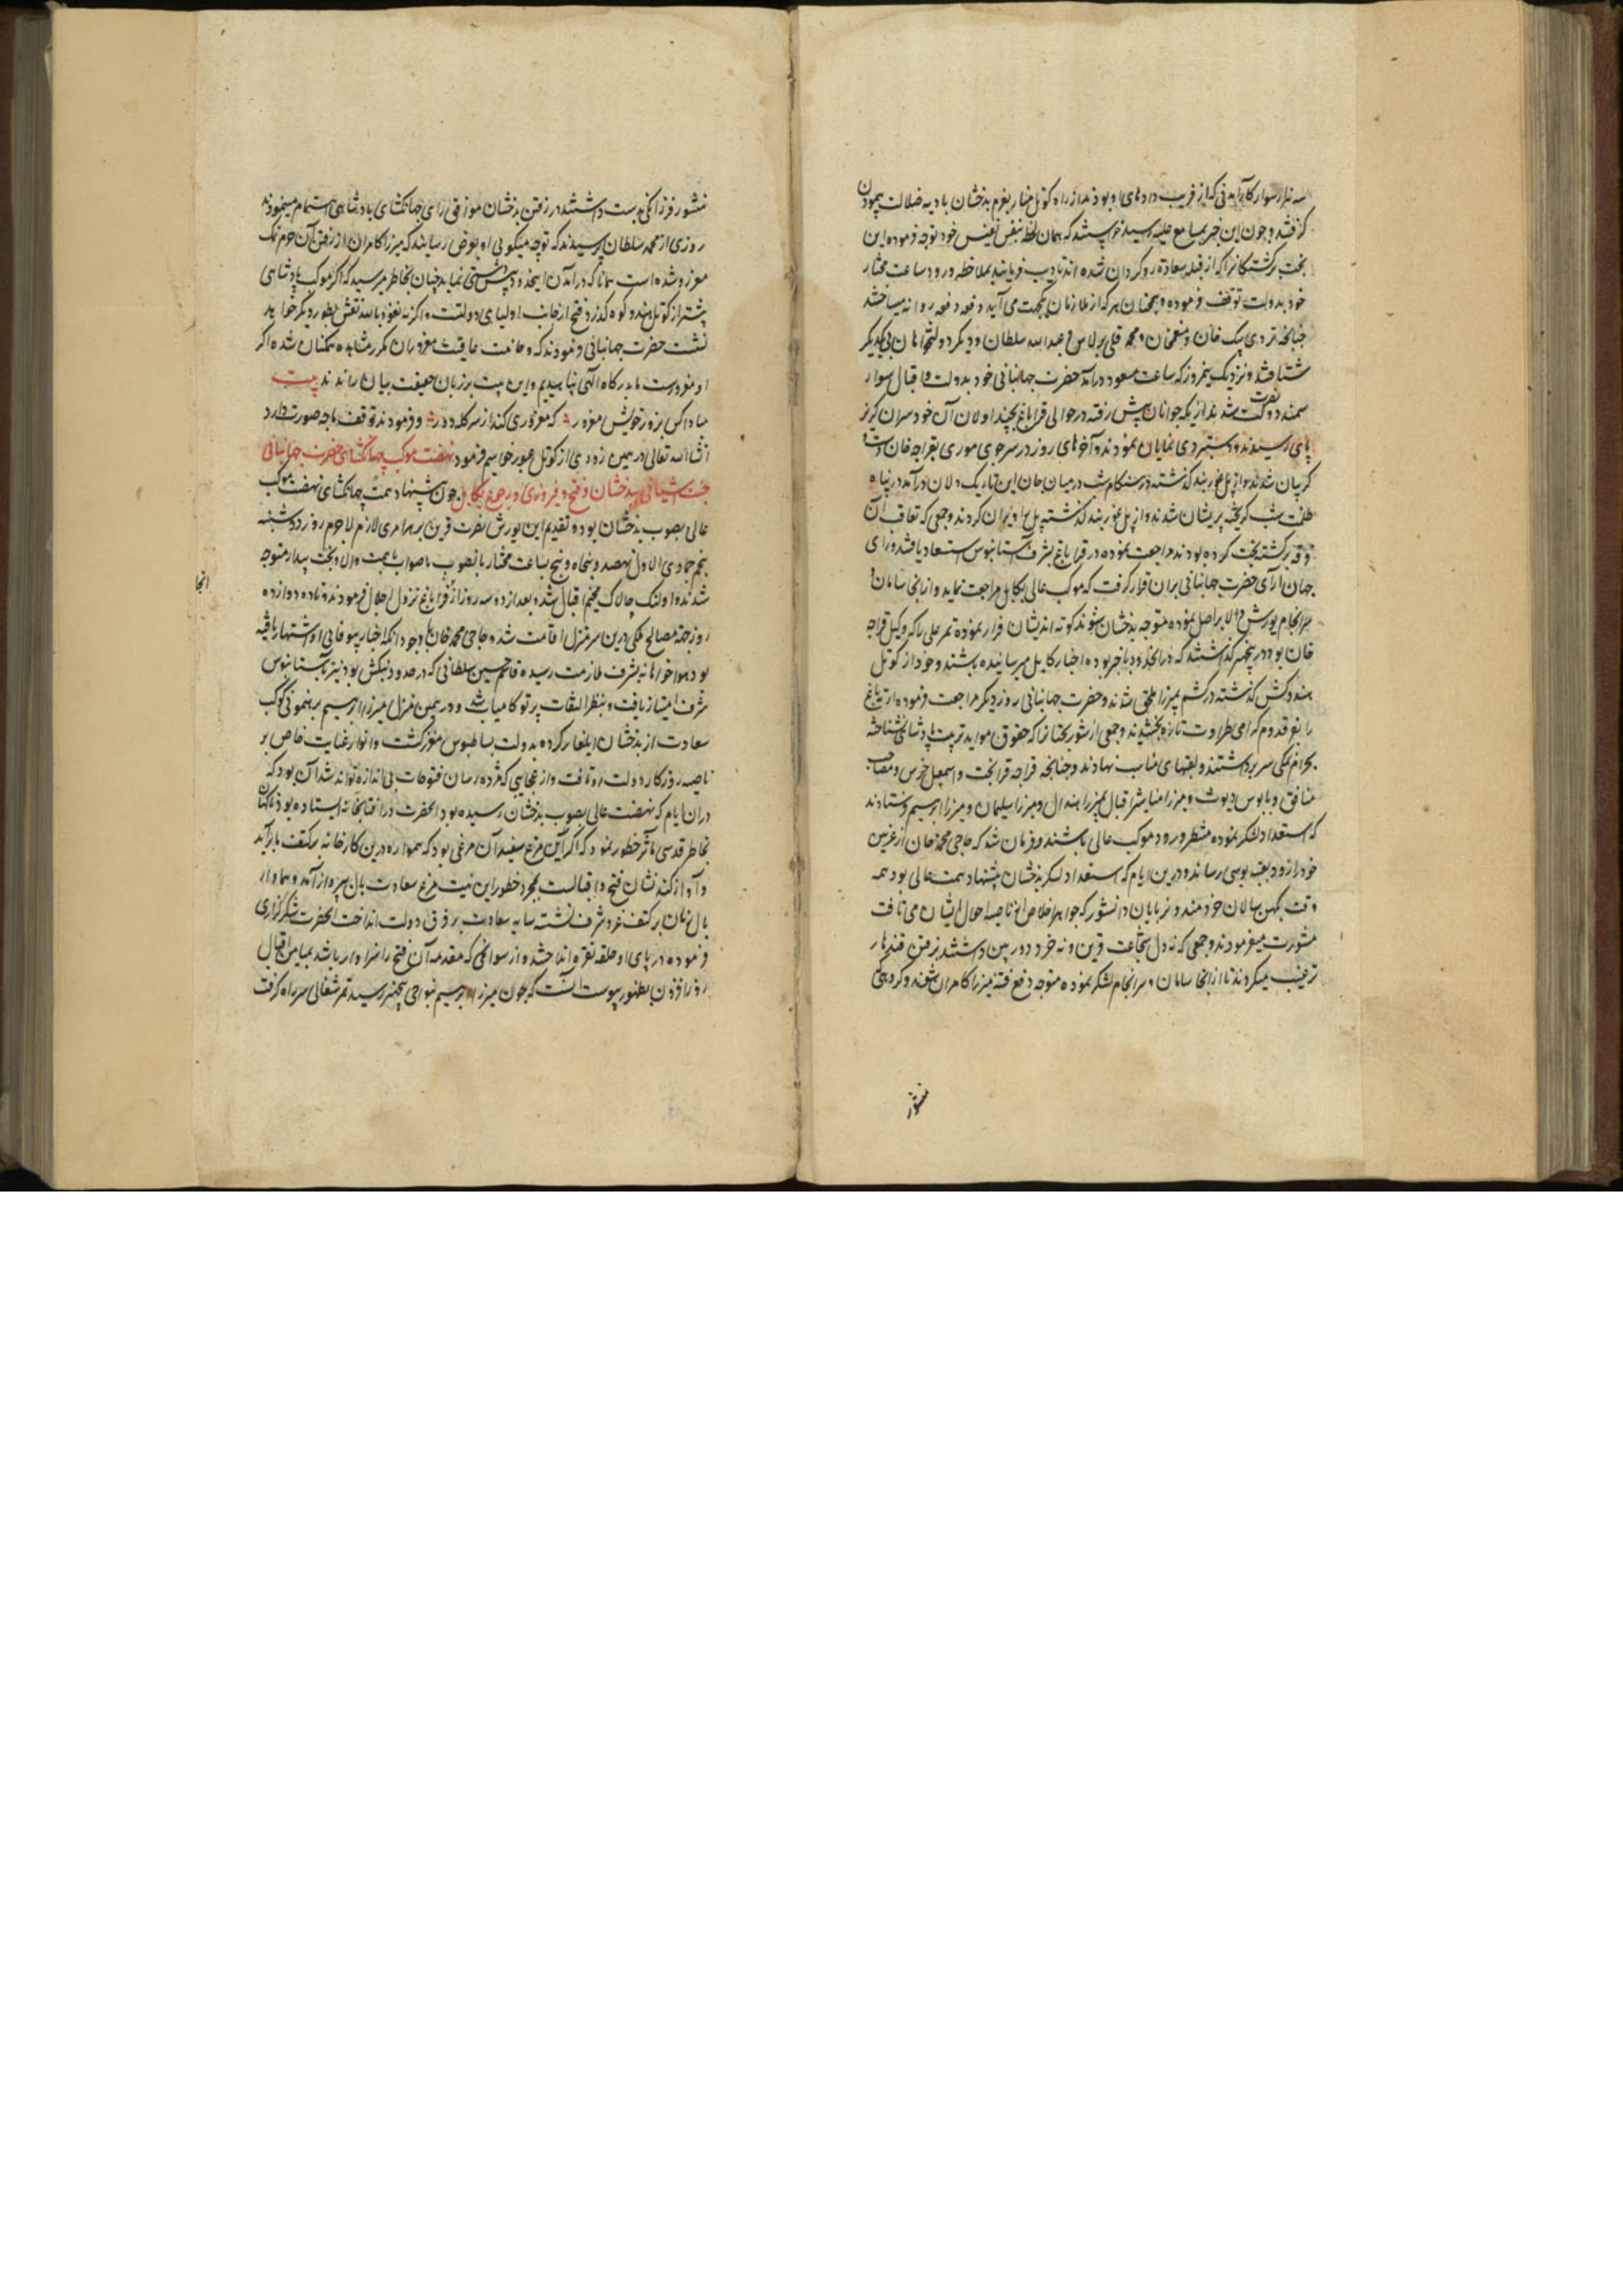 سه هزار سوار کارآمدنی که از فریب داده‌های او بودند از راه کوتل منار بعزم بدخشان بادیه ضلالت پیمودن
گرفتند و چون این خبر بمسامع علیه رسید خواستند که همان لحظه بنفس نفیس خود توجه فرموده این
بخت برگشتگانرا که از قبله سعادت روگردان شده اند تادیب فرمایند بملاحظه ورود ساعت مختار
خود بدولت توقف فرموده و همچنان هر که از ملازمان یکجهت می آید دفعه دفعه روانه میساختند
چنانچه تردی بیک خان و منعم خان و محمد قلی برلاس و عبدالله سلطان و دیگر دولتخواهان پی یکدیگر
شتافتند و نزدیک نیمروز که ساعت مسعود درآمد حضرت جهانبانی خود بدولت و اقبال سوار
سمند نصرت شدند از یکه جوانان پیش رفته در حوالی قراباغ بچنداولان آن خودسران گریز
پای رسیدند و دستبردی نمایان نمودند و آخرهای روز در سر جوی موری بقراجه خان دست و
گریبان شدند و از پل غوربند گذشته در هنگام شب در میان جان این تاریک دلان درآمد در پناه
ظلمت شب گریخته پریشان شدند و از پل غوربند گذشته پل را ویران کردند و جمعی که تعاقب آن
فرقه برگشته بخت کرده بودند مراجعت نموده در قراباغ بشرف آستانبوس استسعاد یافتند و رای
جهان آرای حضرت جهانبانی بران قرار گرفت که موکب عالی بکابل مراجعت نماید و از آنجا سامان و
سرانجام یورش والا بر اصل نموده متوجه بدخشان شوند کوته اندیشان فرار نموده تمر علی را که وکیل قراجه
خان بود در پنجهیر گذاشتند که در آنحدود باخبر بوده اخبار کابل میرسانیده باشند و خود از کوتل
هندوکش گذشته در کشم بمیرزا ملحق شدند و حضرت جهانبانی روز دیگر مراجعت فرموده ارته باغ
را بفر قدوم گرامی طراوت تازه بخشیدند و جمعی از شوربختانرا که حقوق موایدتربیت پادشاهی نشناخته
بحرام نمکی سر برداشتند و لقبهای مناسب نهادند و چنانچه قراجه قرابخت و اسمعیل خرس و مصاحب
منافق و بابوس دیوث و میرزا مناشیر اقبال بمیرزا هندال و میرزا سلیمان و میرزا ابرهیم فرستادند
که استعداد لشکر نموده منتظر ورود موکب عالی باشند و فرمان شد که حاجی محمد خان از غزنین
خود را زود بعتبه بوسی رساند و درین ایام که استعداد لشکر بدخشان پیشنهاد همت عالی بود همه
وقت بکهن سالان خردمند و برنایان دانشور که جواهر اخلاص از ناصیه احوال ایشان می تافت
مشورت میفرمودند و جمعی که نه دل شجاعت قرین و نه خرد دوربین داشتند برفتن قندهار
ترغیب میکردند تا از آنجا سامان و سرانجام لشکر نموده متوجه دفع فتنه میرزا کامران شوند و گروهی که
منشور
منشور فرزانگی بدست داشتند در رفتن بدخشان موافق رای جهانگشای پادشاهی اهتمام مینمودند
روزی از محمد سلطان پرسیدند که تو چه میگویی او بعرض رسانید که میرزا کامران از رفتن آن حرام نمک
مغرور شده است همانا که در آمدن اینحدود پیشدستی نماید چنان بخاطر میرسد که اگر موکب پادشاهی
پیشتر از کوتل هندوکوه گذرد فتح از جانب اولیای دولتست و اگر نه نعوذ بالله نقش بطور دیگر خواهد
نشست حضرت جهانبانی فرمودند که وخامت عاقبت مغروران مکرر مشاهده همکنان شده اگر
او مغرورست ما بدرگاه الهی پناهیدیم و این بیت بر زبان حقیقت بیان راندند بیت
مباد کس بزور خویش مغرور * که مغروری کند از سر کله دور * و فرمودند توقف ما چه صورت دارد
انشاالله تعالی در همین زودی از کوتل عبور خواهیم فرمود نهضت موکب جهانگشای حضرت جهانبانی
جنت آشیانی ببدخشان و فتح و فیروزی و رجوع بکابل چون پیشنهاد همت جهانگشای نهضت موکب
عالی بصوب بدخشان بود و تقدیم این یورش نصرت قرین بر هر امری لازم لاجرم روز دوشنبه
پنجم جمادی الاول نهصد و پنجاه و پنج بساعت مختار بآنصوب باصواب با همت والا و بخت بیدار متوجه
شدند و اولنک چالاک مخیم اقبال شد و بعد از دو سه روز از قراباغ نزول اجلال فرمودند و تا ده دوازده
روز جهت مصالح ملکی درین سرمنزل اقامت شد و حاجی محمد خان با وجود آنکه اخبار بیوفایی او اشتهار یافته
بود هواخواهانه بشرف ملازمت رسیده قاسم حسین سلطانی که در حدود بنکش بود نیز بآستانبوس
شرف امتیاز یافت و بنظر التفات پرتو کامیاب شد و در همین منزل میرزا ابرهیم برهنمونی کوکب
سعادت از بدخشان ایلغار کرده بدولت بساطبوس مفتخر گشت و انوار عنایت خاص بر
ناصیه روزگار دولت او تافت و از عجایبی که مژده رسان فتوحات بی اندازه تواند شد آن بود که
دران ایام که نهضت عالی بصوب بدخشان رسیده بود آنحضرت در آفتابخانه ایستاده بودند ناگهان
بخاطر قدسی مآثر خطور نمود که اگر این مرغ سفید آن مرغی بود که همواره درین کارخانه بر کتف ما برآید
و آواز کند نشان فتح و اقبالست بمجرد خطور این نیت مرغ سعادت بال بپرواز آمد و هماوار
بال زنان بر کتف عز و شرف نشسته سایه سعادت بر فرق دولت انداخت آنحضرت شکرگزاری
فرموده در پای او حلقه نقره انداختند و از سوانحی که مقدمه آن فتح را سزاوار باشد بمیامن اقبال
روزافزون بظهور پیوست آنست که چون میرزا ابرهیم بنواحی پنجهیر رسید تمر شغالی سر راه گرفت
انجا